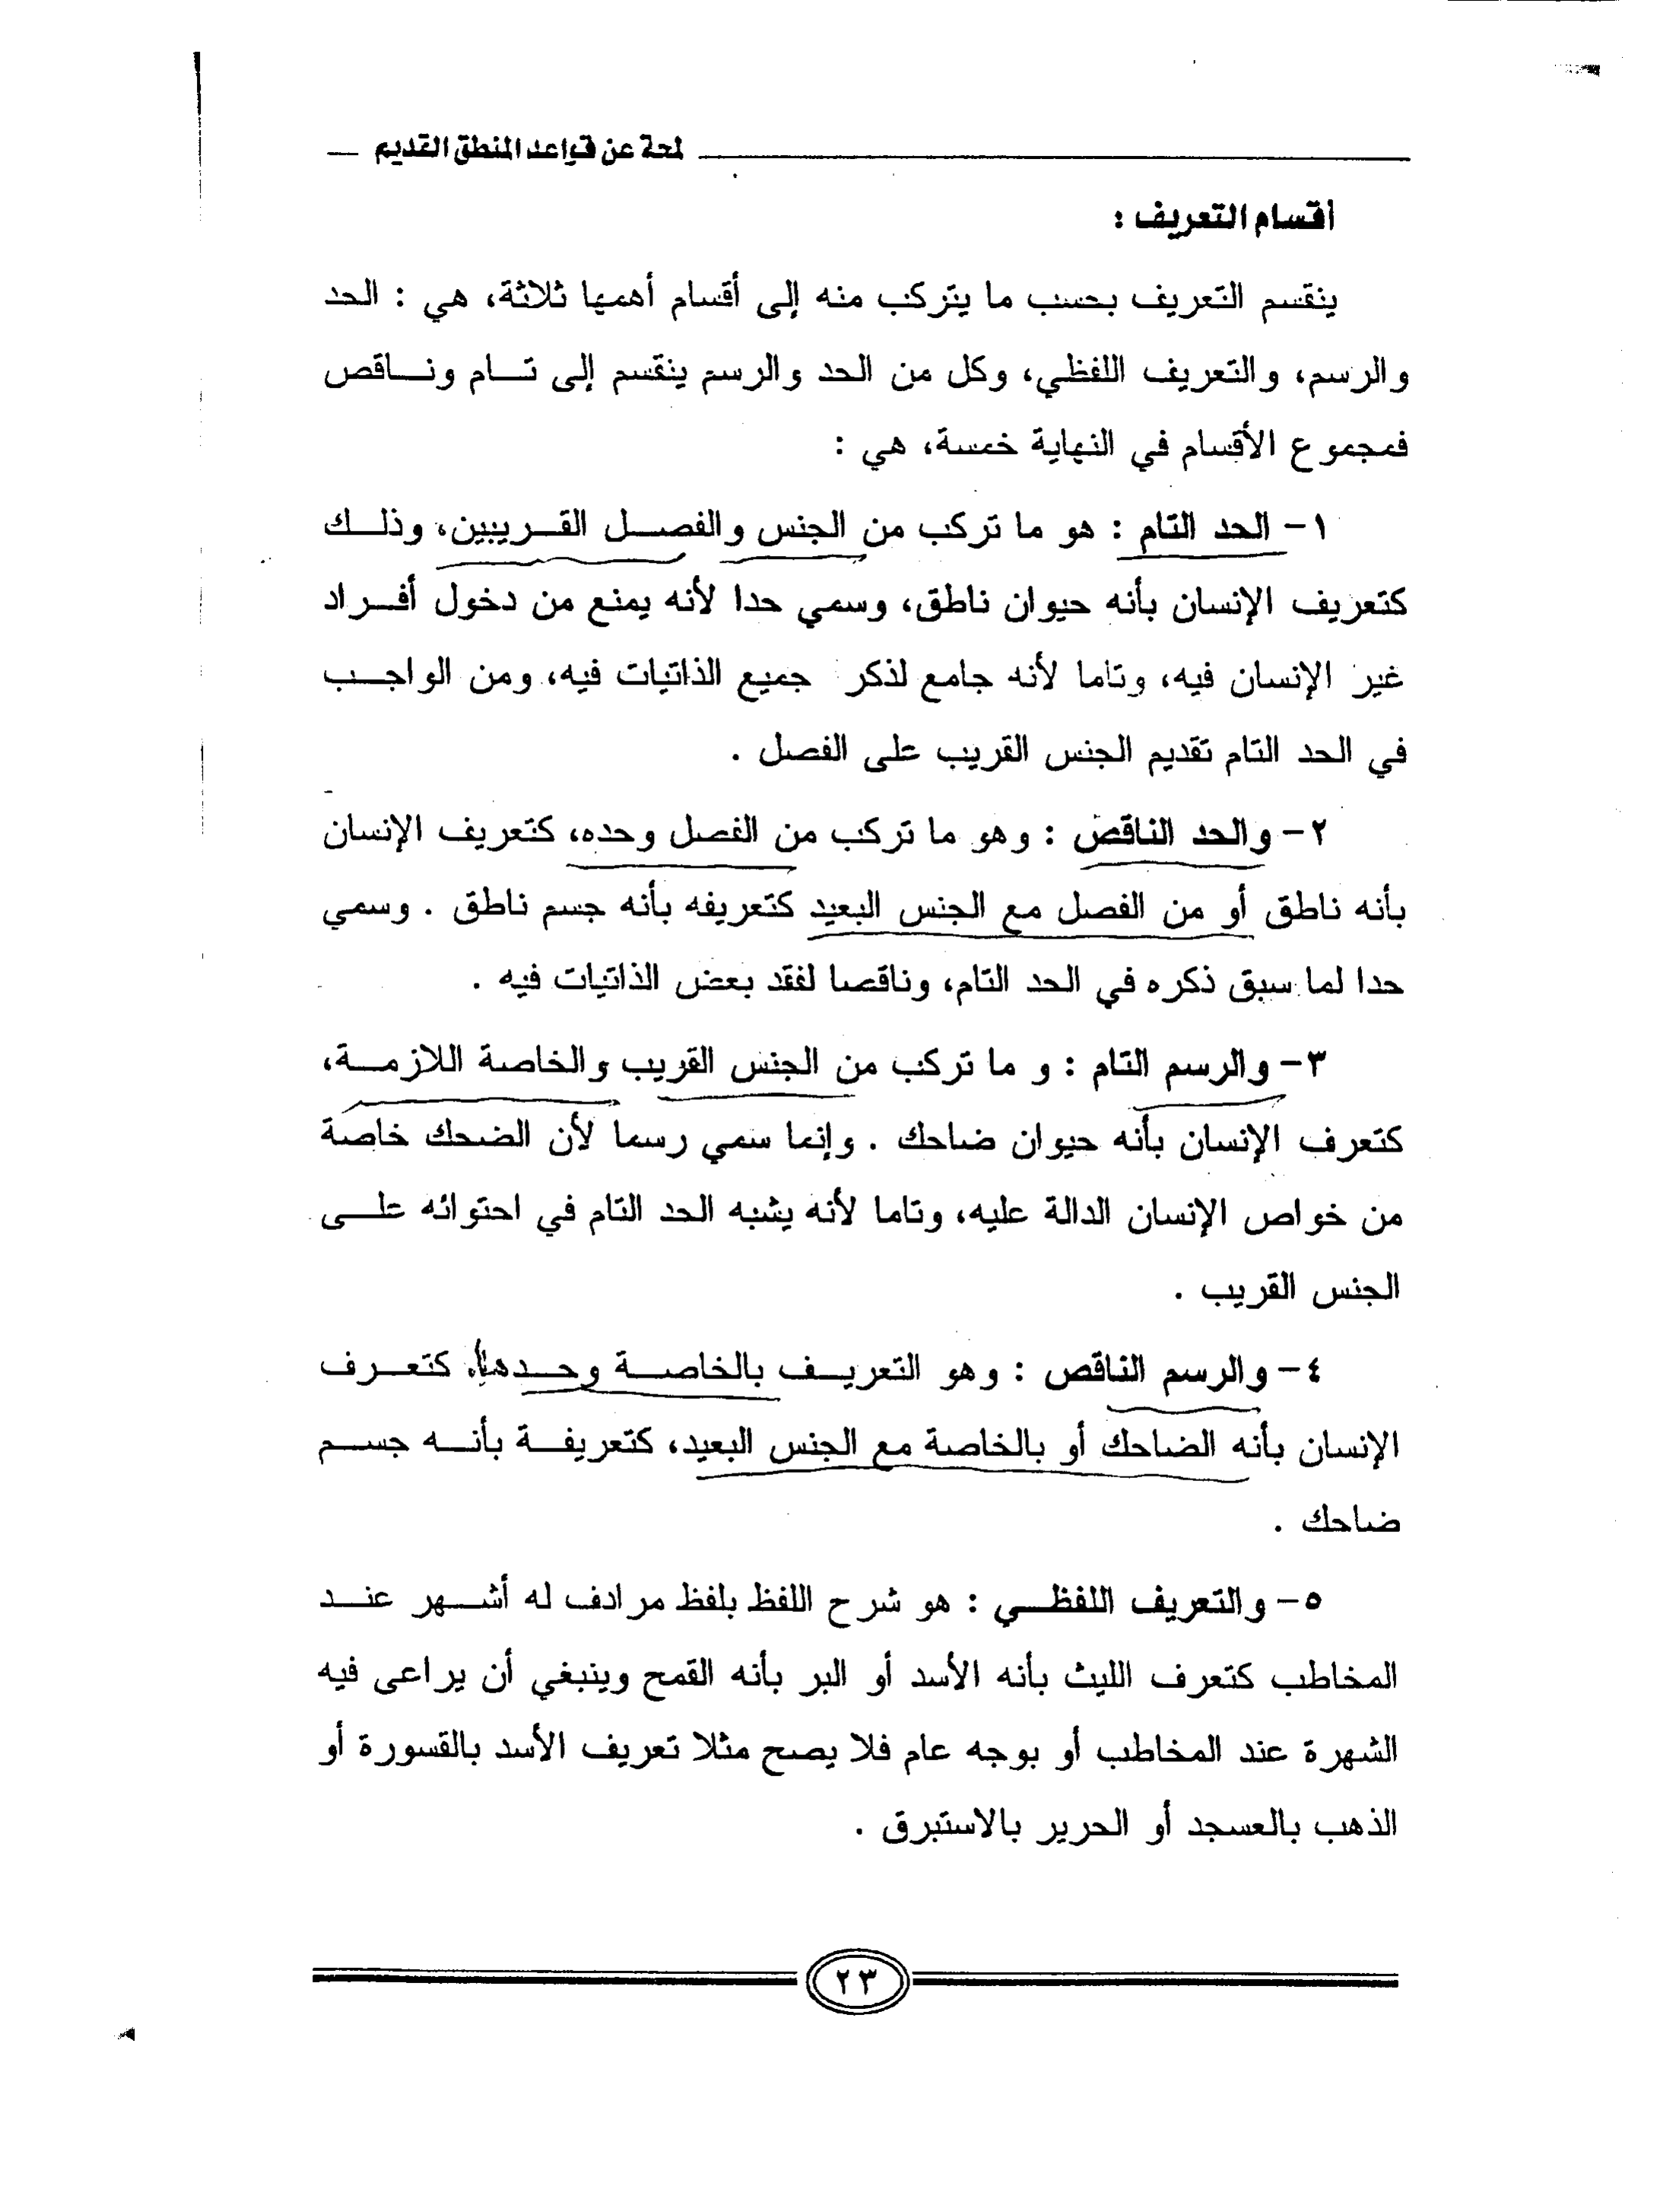 لمحة عن قواعد المنطق القديم
أقسام التعريف :
ينقسم التعريف بحسب ما يتركب منه إلى أقسام أهمها ثلاثة، هي : الحد
والرسم، والتعريف اللفظي، وكل من الحد والرسم ينقسم إلى تام وناقص
فمجموع الأقسام في النهاية خمسة، هي :
١- الحد التام : هو ما تركب من الجنس والفصل القريبين، وذلك
كتعريف الإنسان بأنه حيوان ناطق، وسمي حدا لأنه يمنع من دخول أفراد
غير الإنسان فيه، وتاما لأنه جامع لذكر جميع الذاتيات فيه، ومن الواجب
في الحد التام تقديم الجنس القريب على الفصل .
٢- والحد الناقص : وهو ما تركب من الفصل وحده، كتعريف الإنسان
بأنه ناطق أو من الفصل مع الجنس البعيد كتعريفه بأنه جسم ناطق . وسمي
حدا لما سبق ذكره في الحد التام، وناقصا لفقد بعض الذاتيات فيه .
٣- والرسم التام : و ما تركب من الجنس القريب والخاصة اللازمة،
كتعرف الإنسان بأنه حيوان ضاحك . وإنما سمي رسما لأن الضحك خاصة
من خواص الإنسان الدالة عليه، وتاما لأنه يشبه الحد التام في احتوائه على
الجنس القريب .
٤- والرسم الناقص : وهو التعريف بالخاصة وحدها، كتعرف
الإنسان بأنه الضاحك أو بالخاصة مع الجنس البعيد، كتعريفة بأنه جسم
ضاحك .
٥- والتعريف اللفظي : هو شرح اللفظ بلفظ مرادف له أشهر عند
المخاطب كتعرف الليث بأنه الأسد أو البر بأنه القمح وينبغي أن يراعى فيه
الشهرة عند المخاطب أو بوجه عام فلا يصح مثلا تعريف الأسد بالقسورة أو
الذهب بالعسجد أو الحرير بالاستبرق .
٢٣